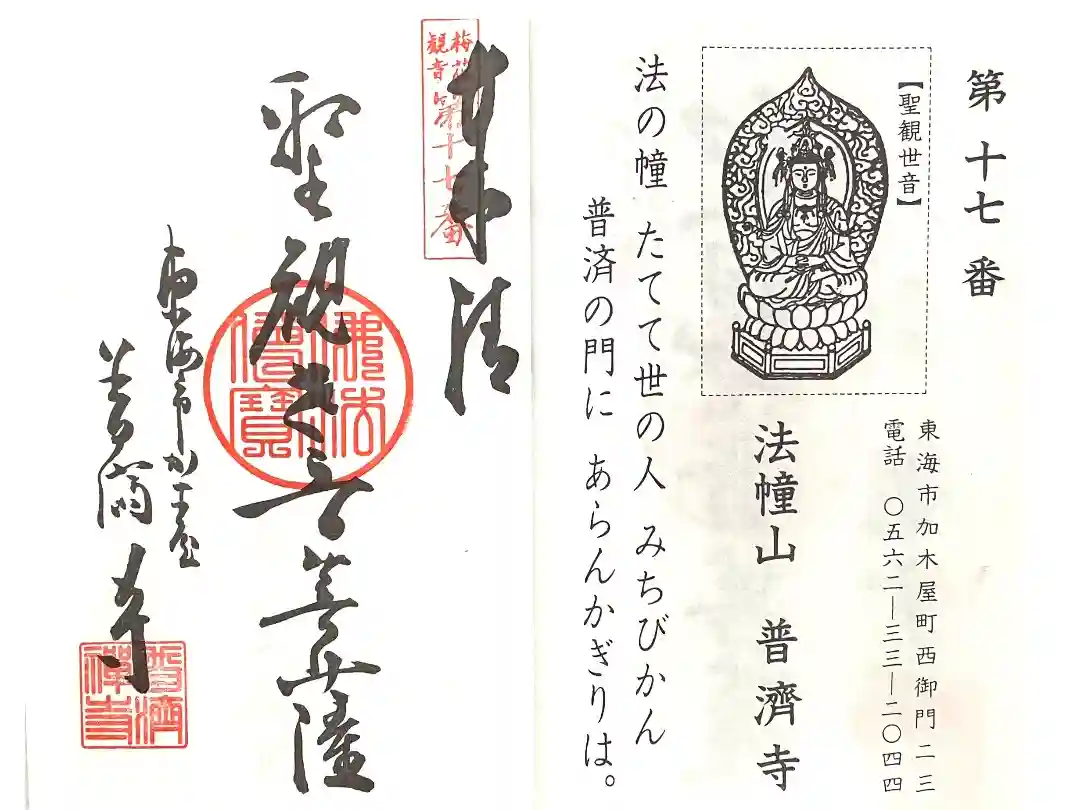 第十七番
【聖観世音】
東海市加木屋町西御門二三
電話 〇五六二―三三―二〇四四
法幢山 普濟寺
法の幢 たてて世の人 みちびかん
普済の門に あらんかぎりは。
奉拝
梅花観音第十七番
聖観世音菩薩
佛法僧寳
東海市加木屋
普濟寺
普濟禅寺